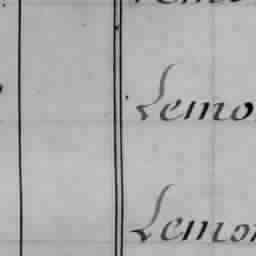 Lemo
Lemon